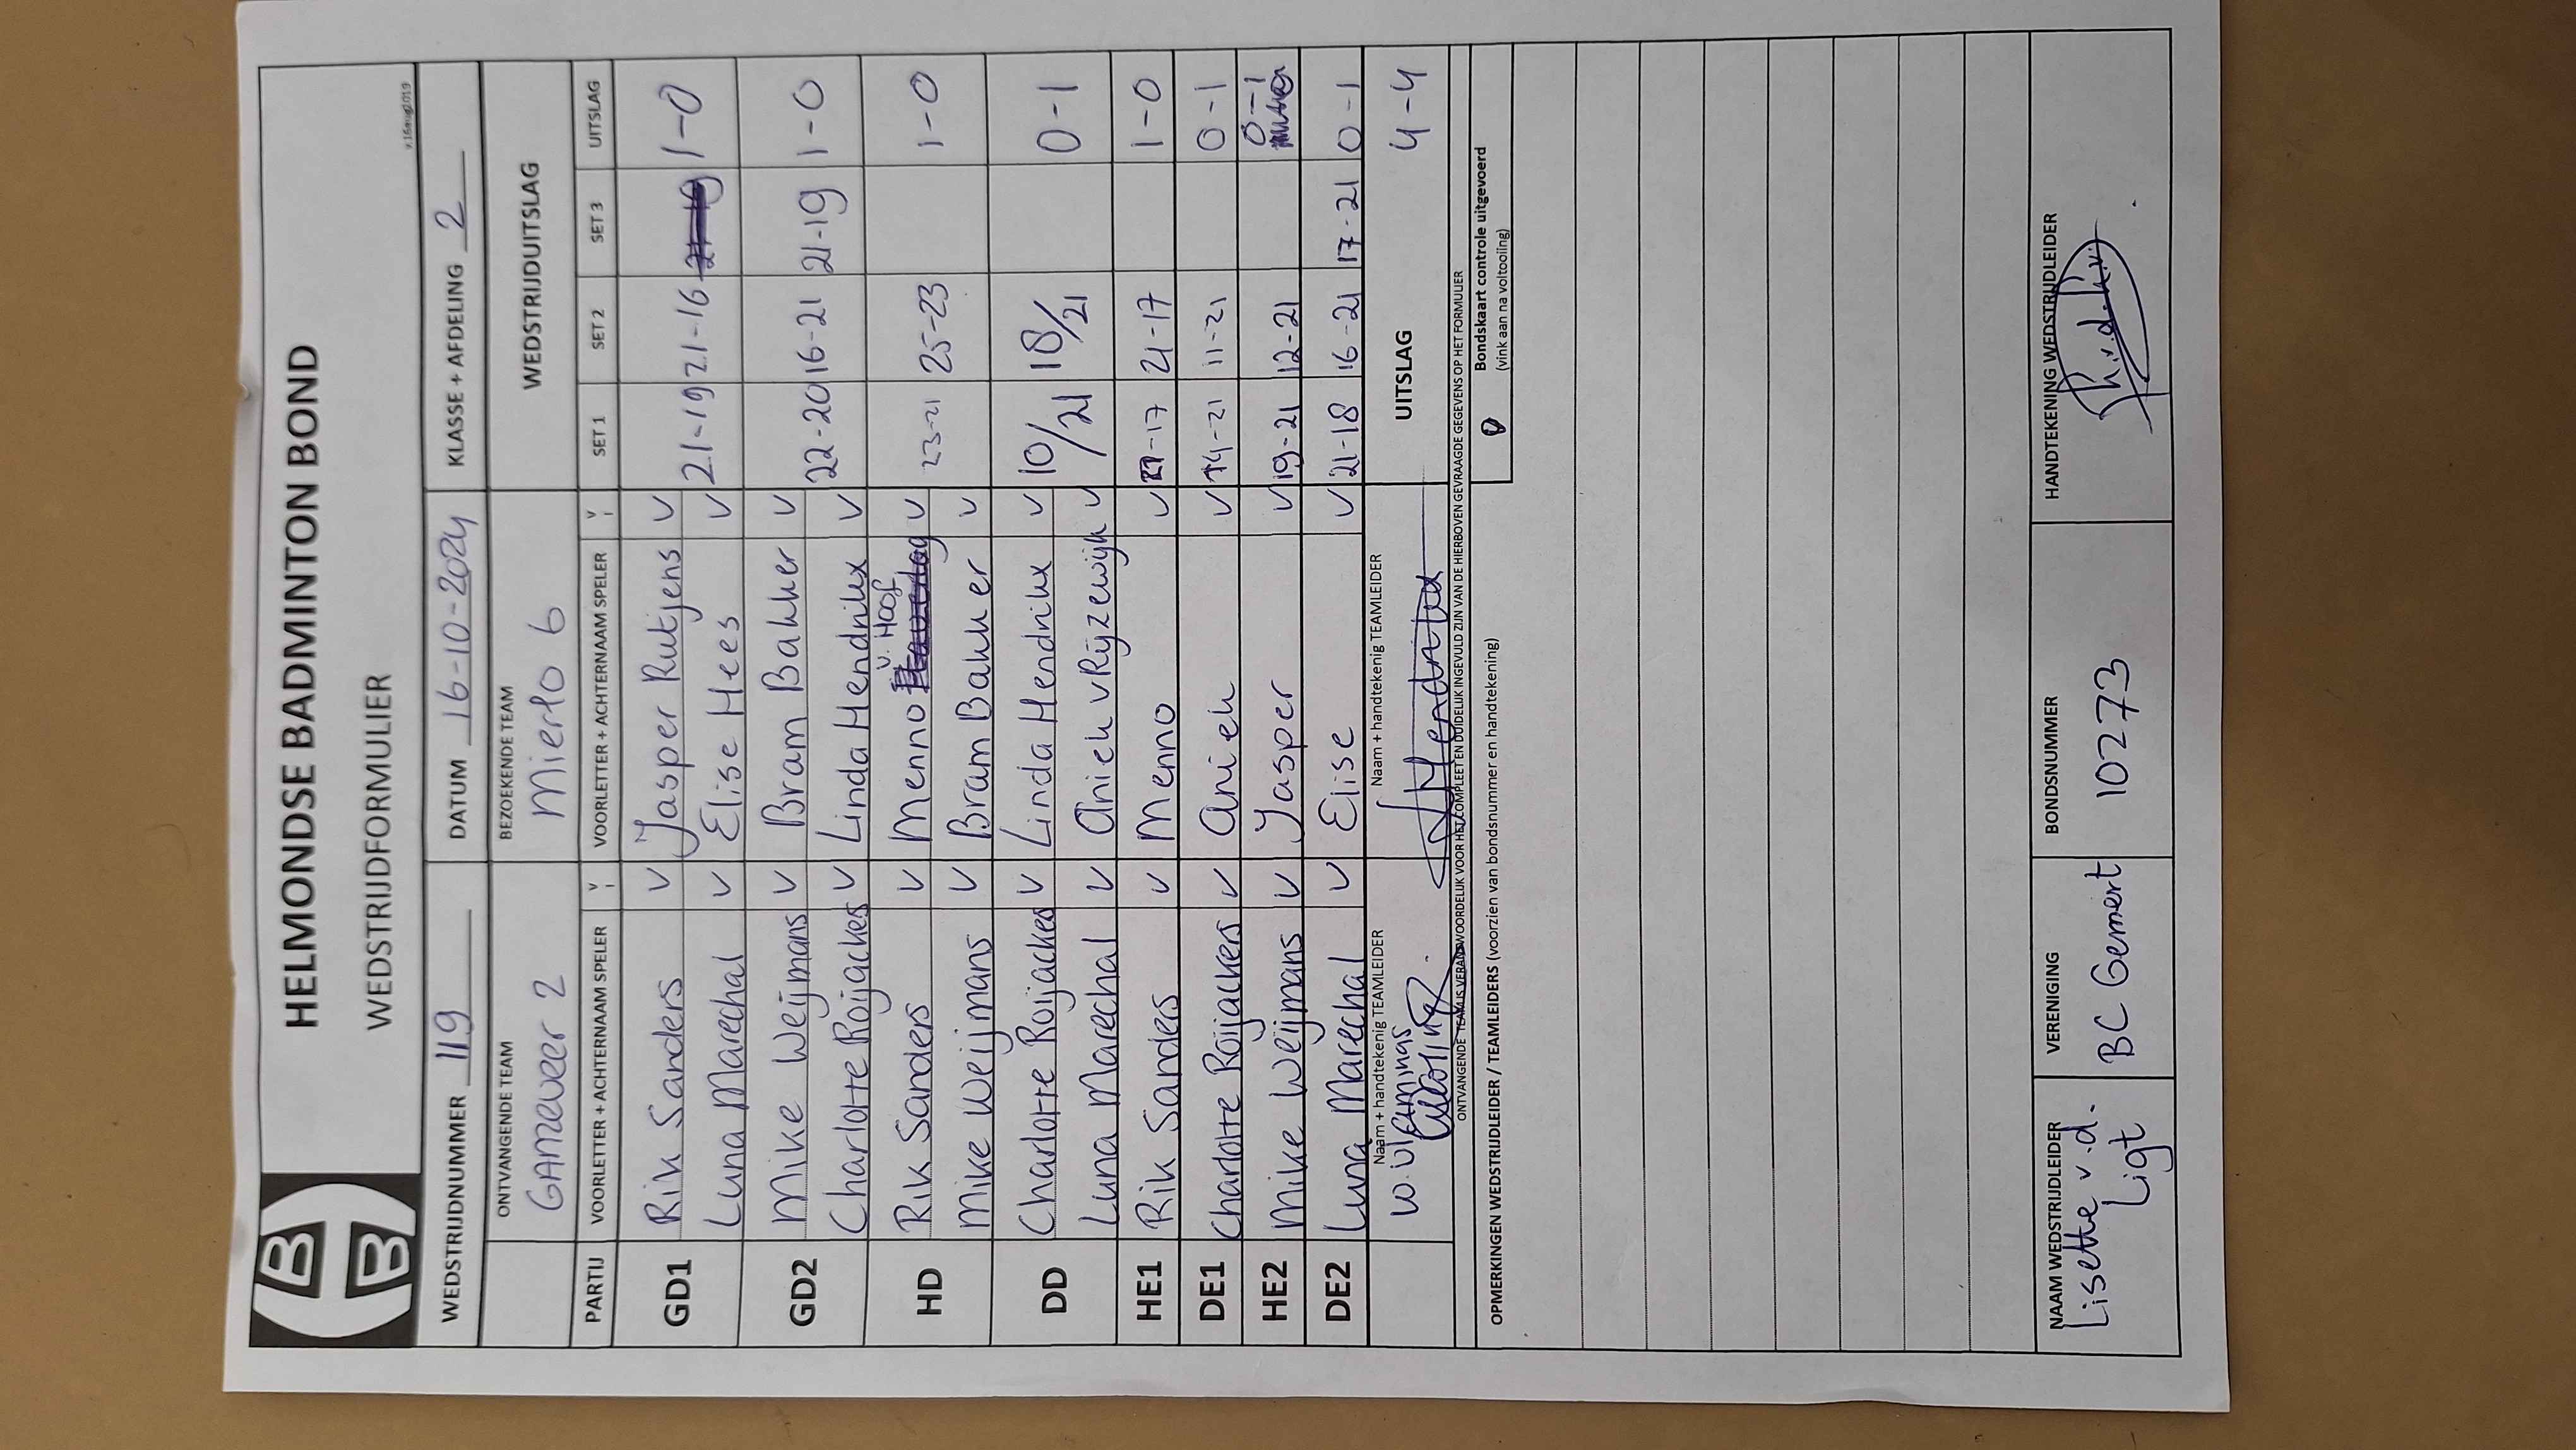 HELMONDSE BADMINTON BOND
WEDSTRIJDFORMULIER
v.16aug2019
WEDSTRIJDNUMMER 119 DATUM 16-10-2024 KLASSE + AFDELING 2
ONTVANGENDE TEAM BEZOEKENDE TEAM WEDSTRIJDUITSLAG
GAMEVEER 2 Mierlo 6
PARTIJ VOORLETTER + ACHTERNAAM SPELER V VOORLETTER + ACHTERNAAM SPELER V SET 1 SET 2 SET 3 UITSLAG
GD1 Rik Sanders V Jasper Rutjens V 21-19 21-16 1-0
Luna Marechal V Elise Hees V
GD2 Mike Weijmans V Bram Bakker V 22-20 16-21 21-19 1-0
Charlotte Roijackers V Linda Hendrikx V
HD Rik Sanders V Menno v. Hoof V 23-21 25-23 1-0
Mike Weijmans V Bram Bakker V
DD Charlotte Roijackers V Linda Hendrikx V 10/21 18/21 0-1
Luna Marechal V Aniek v Rijzewijk V
HE1 Rik Sanders V Menno V 21-17 21-17 1-0
DE1 Charlotte Roijackers V Aniek V 14-21 11-21 0-1
HE2 Mike Weijmans V Jasper V 19-21 12-21 0-1
DE2 Luna Marechal V Elise V 21-18 16-21 17-21 0-1
Naam + handtekenig TEAMLEIDER Naam + handtekenig TEAMLEIDER UITSLAG 4-4
Hendrikx
ONTVANGENDE TEAM IS VERANTWOORDELIJK VOOR HET COMPLEET EN DUIDELIJK INGEVULD ZIJN VAN DE HIERBOVEN GEVRAAGDE GEGEVENS OP HET FORMULIER
OPMERKINGEN WEDSTRIJDLEIDER / TEAMLEIDERS (voorzien van bondsnummer en handtekening)
Bondskaart controle uitgevoerd
(vink aan na voltooiing)
NAAM WEDSTRIJDLEIDER VERENIGING BONDSNUMMER HANDTEKENING WEDSTRIJDLEIDER
Lisette v.d. Ligt BC Gemert 10273